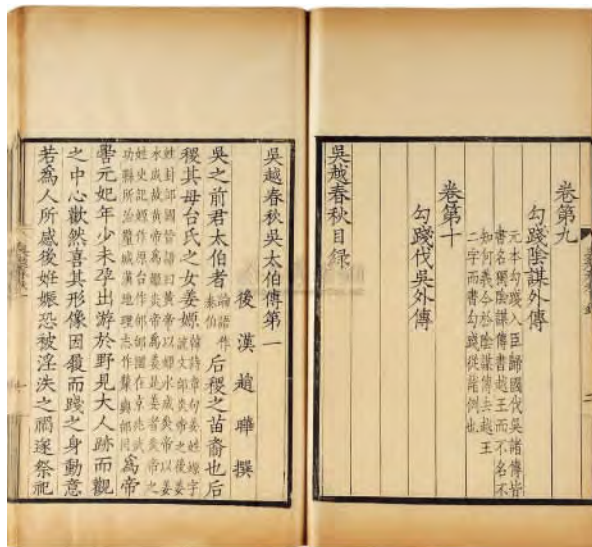 卷第九
勾踐陰謀外傳
元本勾踐入臣歸國伐吳諸傳皆
書名獨陰謀傳書越王而不名不
知何義今於陰謀傳去越王
二字而書勾踐從諸例也
卷第十
勾踐伐吳外傳
吳越春秋目録
吳越春秋吳太伯傳第一
後漢趙曄撰
吳之前君太伯者論語作泰伯后稷之苗裔也后
稷其母台氏之女姜嫄韓詩章句姜姓嫄字說文邰炎帝之後姜
姓封邰國晉語曰黃帝以姬水成炎帝以姜
水成故黃帝爲姬炎帝爲姜是姜者炎帝之
姓史記嫄作原台作邰邰國在京兆武
功縣所治釐城漢地理志作斄與邰同爲帝
嚳元妃年少未孕出游於野見大人跡而觀
之中心歡然喜其形像因履而踐之身動意
若爲人所感後妊娠恐被淫泆之禍遂祭祀